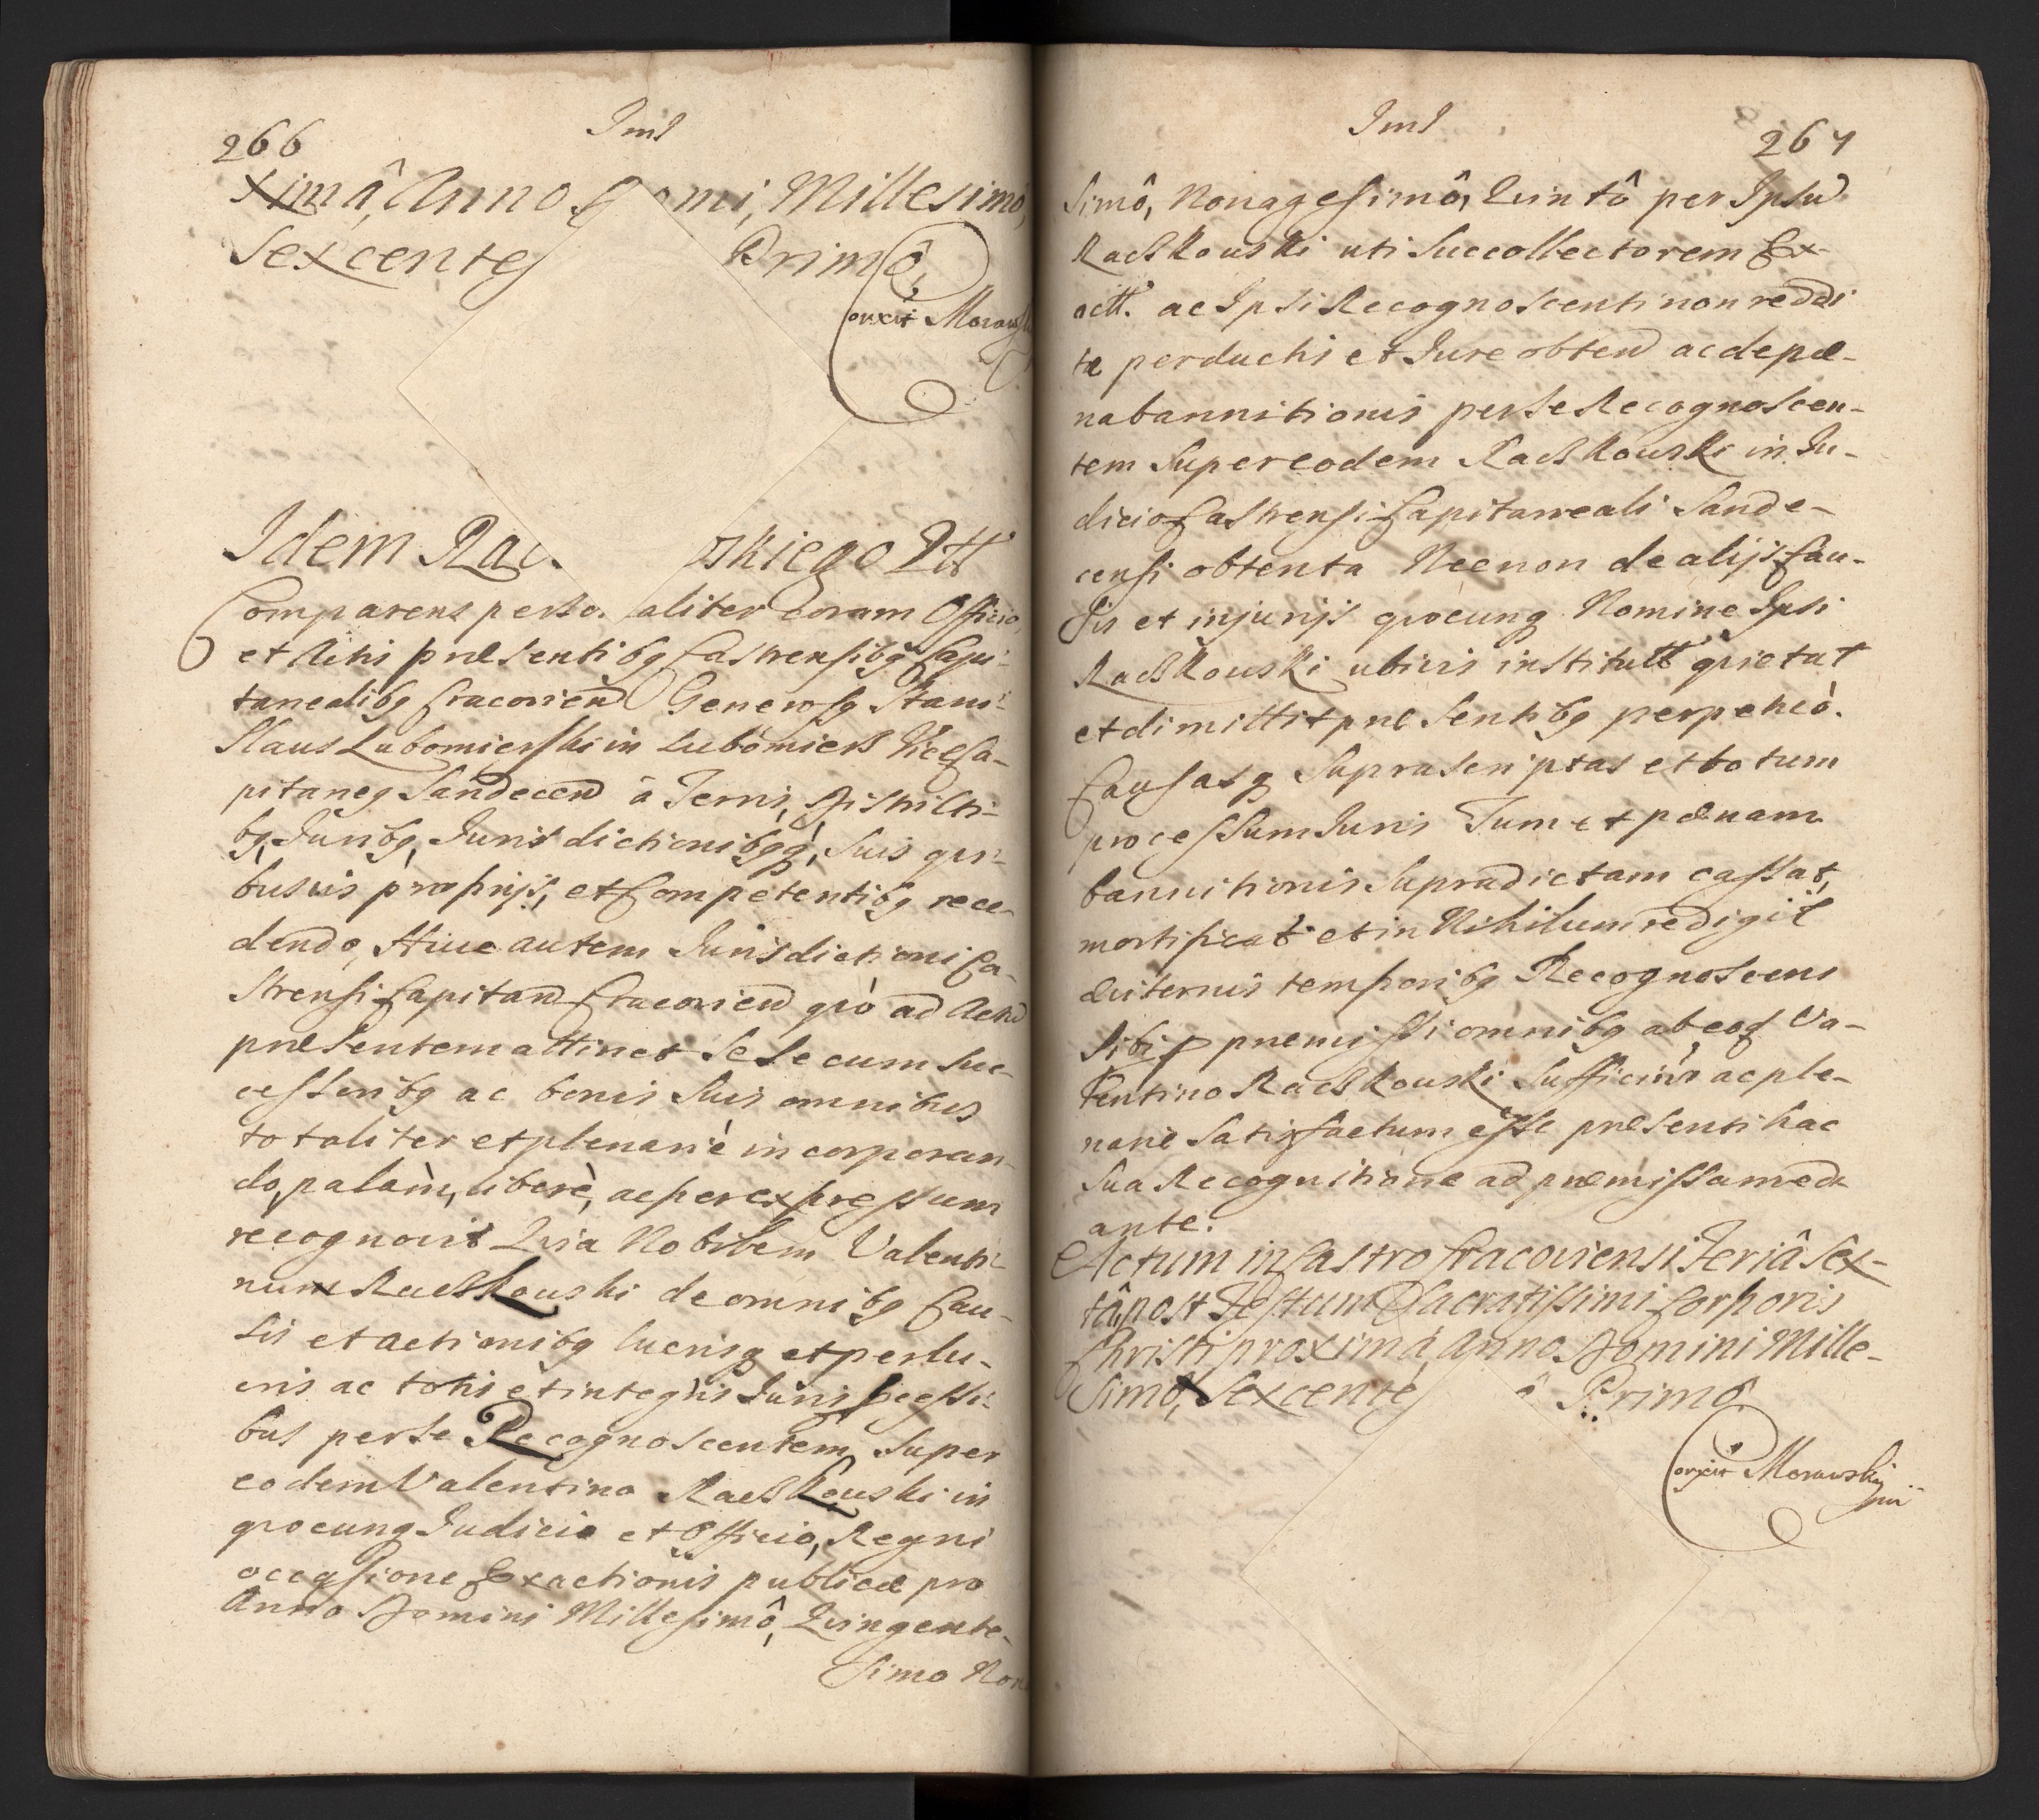 266
Iml
ximâ, Anno mi, Millesimô,
Sexcentes Primô,
Corexit Morawski
Idem Rac skiego Qtt
Comparens perso aliter coram Officio,
et Actis præsentibq Castrensibq Capi-
tanealibq Cracovien Generosq Stani-
slaus Lubomierski in Lubomierz Viceca-
pitaneq Sandecen â Terris, Districti-
bq, Juribq, Jurisdictionibqq, suis qui-
busuis proprijs, et Competentibq rece-
dendo, Huic autem Jurisdictioni Ca-
strensi Capitan Cracovien quò ad Actu
præsentem attinet sese cum suc-
cessoribq ac bonis suis omnibus
totaliter et plenariè incorporan-
do, palàm, liberè, ac per expressum
recognovit Quia Nobilem Valenti-
num Raczkouski de omnibq Cau-
sis et actionibq lucrisq et perlu-
cris ac totis et integris Juris pcessi-
bus per se Recognoscentem, super
eodem Valentino Raczkouski in
quocunq Judicio et Officio, Regni
occasione Exactionis publicæ pro
Anno Domini Millesimô, Quingente-
simo Non
Iml
267
simô, Nonagesimô, Quintô per Ipsu
Raczkouski uti Succollectorem Ex-
actt. ac Ipsi Recognoscenti non reddi
tæ perductis et Jure obten ac de pæ-
na bannitionis per se Recognoscen-
tem super eodem Raczkouski in Ju-
dicio Castrensi Capitaneali Sande-
censi obtenta Necnon de alijs Cau-
sis et injurijs quocunq Nomine Ipsi
Raczkouski ubiuis institutt quietat
et dimittit præsentibq perpetuò.
Causasq suprascriptas et totum
processum Juris Tum et pænam
bannitionis supradictam cassat,
mortificat et in Nihilum redigit
æuiternis temporibq Recognoscens
sibi p præmissis omnibq ab eod Va-
lentino Raczkouski sufficien ac ple-
narie satisfactum esse præsenti hac
sua Recognitione ad præmissa medi
ante.
Actum in Castro Cracoviensi Feriâ Sex-
tâ, post Festum Sacratissimi Corporis
Christi proximâ Anno Domini Mille-
simô, Sexcentes ô Primô
Corexit Morawski
mp